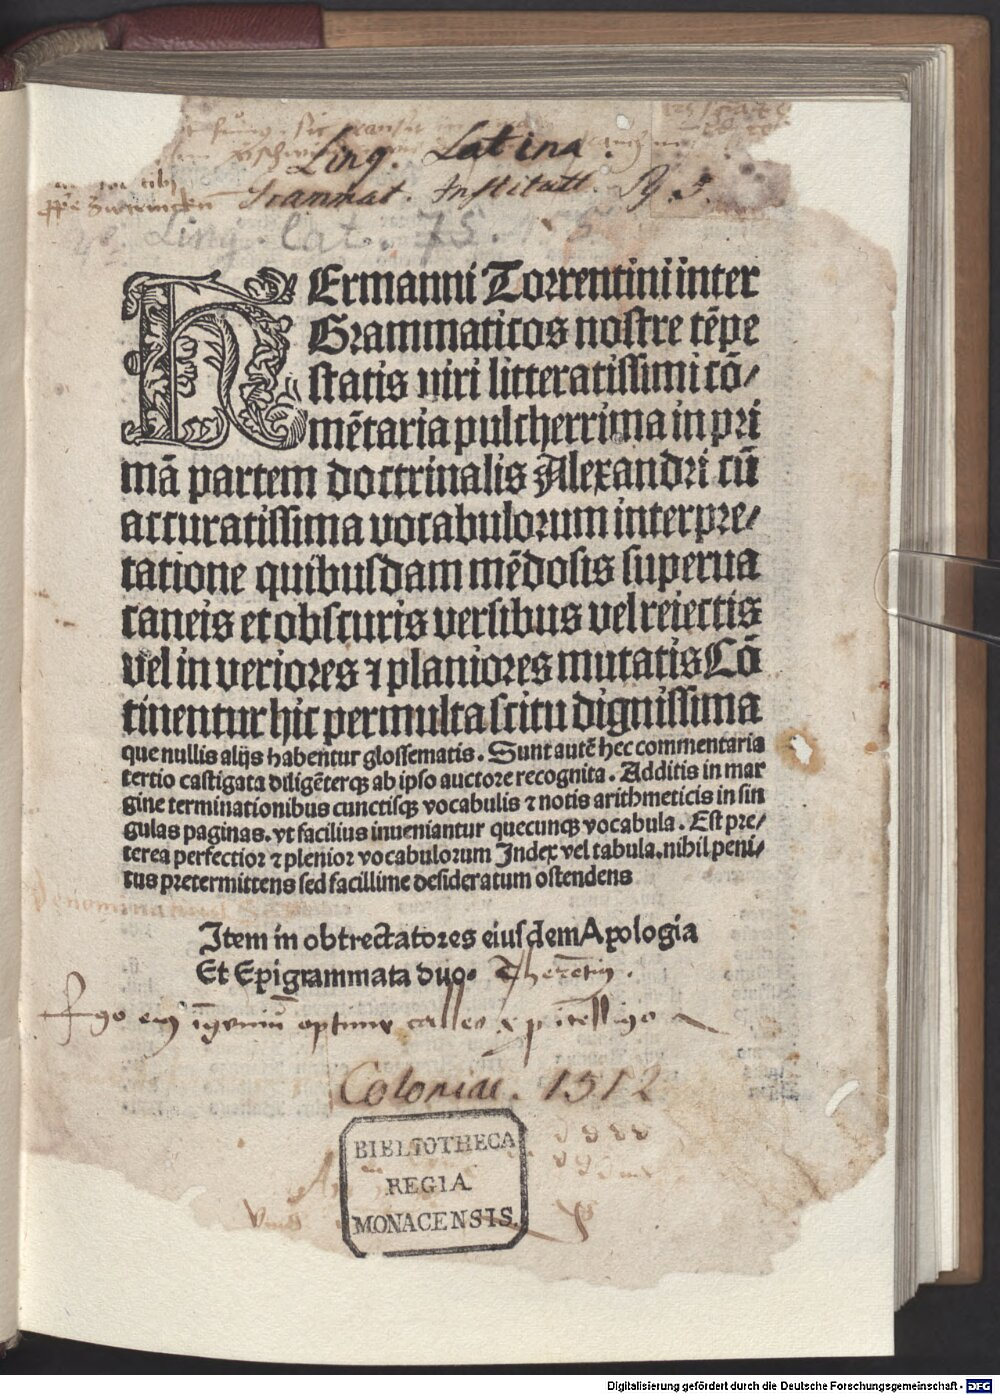 Ling. Latina.
Grammat. Institutt. Pg. 5.
4° Ling. Lat. 75.
HErmanni Torrentini inter
Grammaticos nostre tēpe
statis viri litteratissimi cō/
mētaria pulcherrima in pri
mā partem doctrinalis Alexandri cū
accuratissima vocabulorum interpre/
tatione quibusdam mēdosis superua
caneis et obscuris versibus vel reiectis
vel in veriores ⁊ planiores mutatis Cō
tinentur hic permulta scitu dignissima
que nullis alijs habentur glossematis. Sunt autē hec commentaria
tertio castigata diligēterqꝫ ab ipso auctore recognita. Additis in mar
gine terminationibus cunctisqꝫ vocabulis ⁊ notis arithmeticis in sin
gulas paginas. vt facilius inueniantur quecunqꝫ vocabula. Est pre/
terea perfectior ⁊ plenior vocabulorum Index vel tabula. nihil peni/
tus pretermittens sed facillime desideratum ostendens
Item in obtrectatores eiusdem Apologia
Et Epigrammata duo.
Coloniae. 1512
BIBLIOTHECA
REGIA
MONACENSIS.
Digitalisierung gefördert durch die Deutsche Forschungsgemeinschaft - DFG